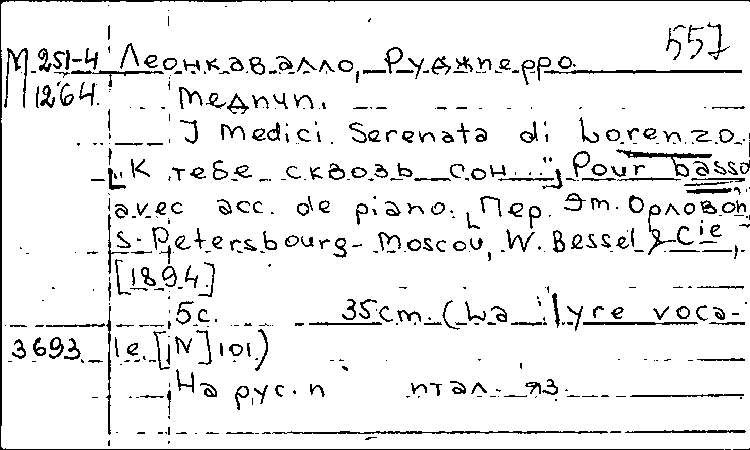 557
М 251-4 Леонкавалло, Руджиерро
1264 Медичи.
I Medici. Serenata di Lorenzo
„К тебе сквозь сон...", Pour basso
avec acc. de piano. [Пер. Эм. Орловой]
S.-Petersbourg-Moscou, W. Bessel & Cie,
[1894]
5с. 35cm. (La lyre voca-
3693 le. [N] 101)
На рус. и итал. яз.